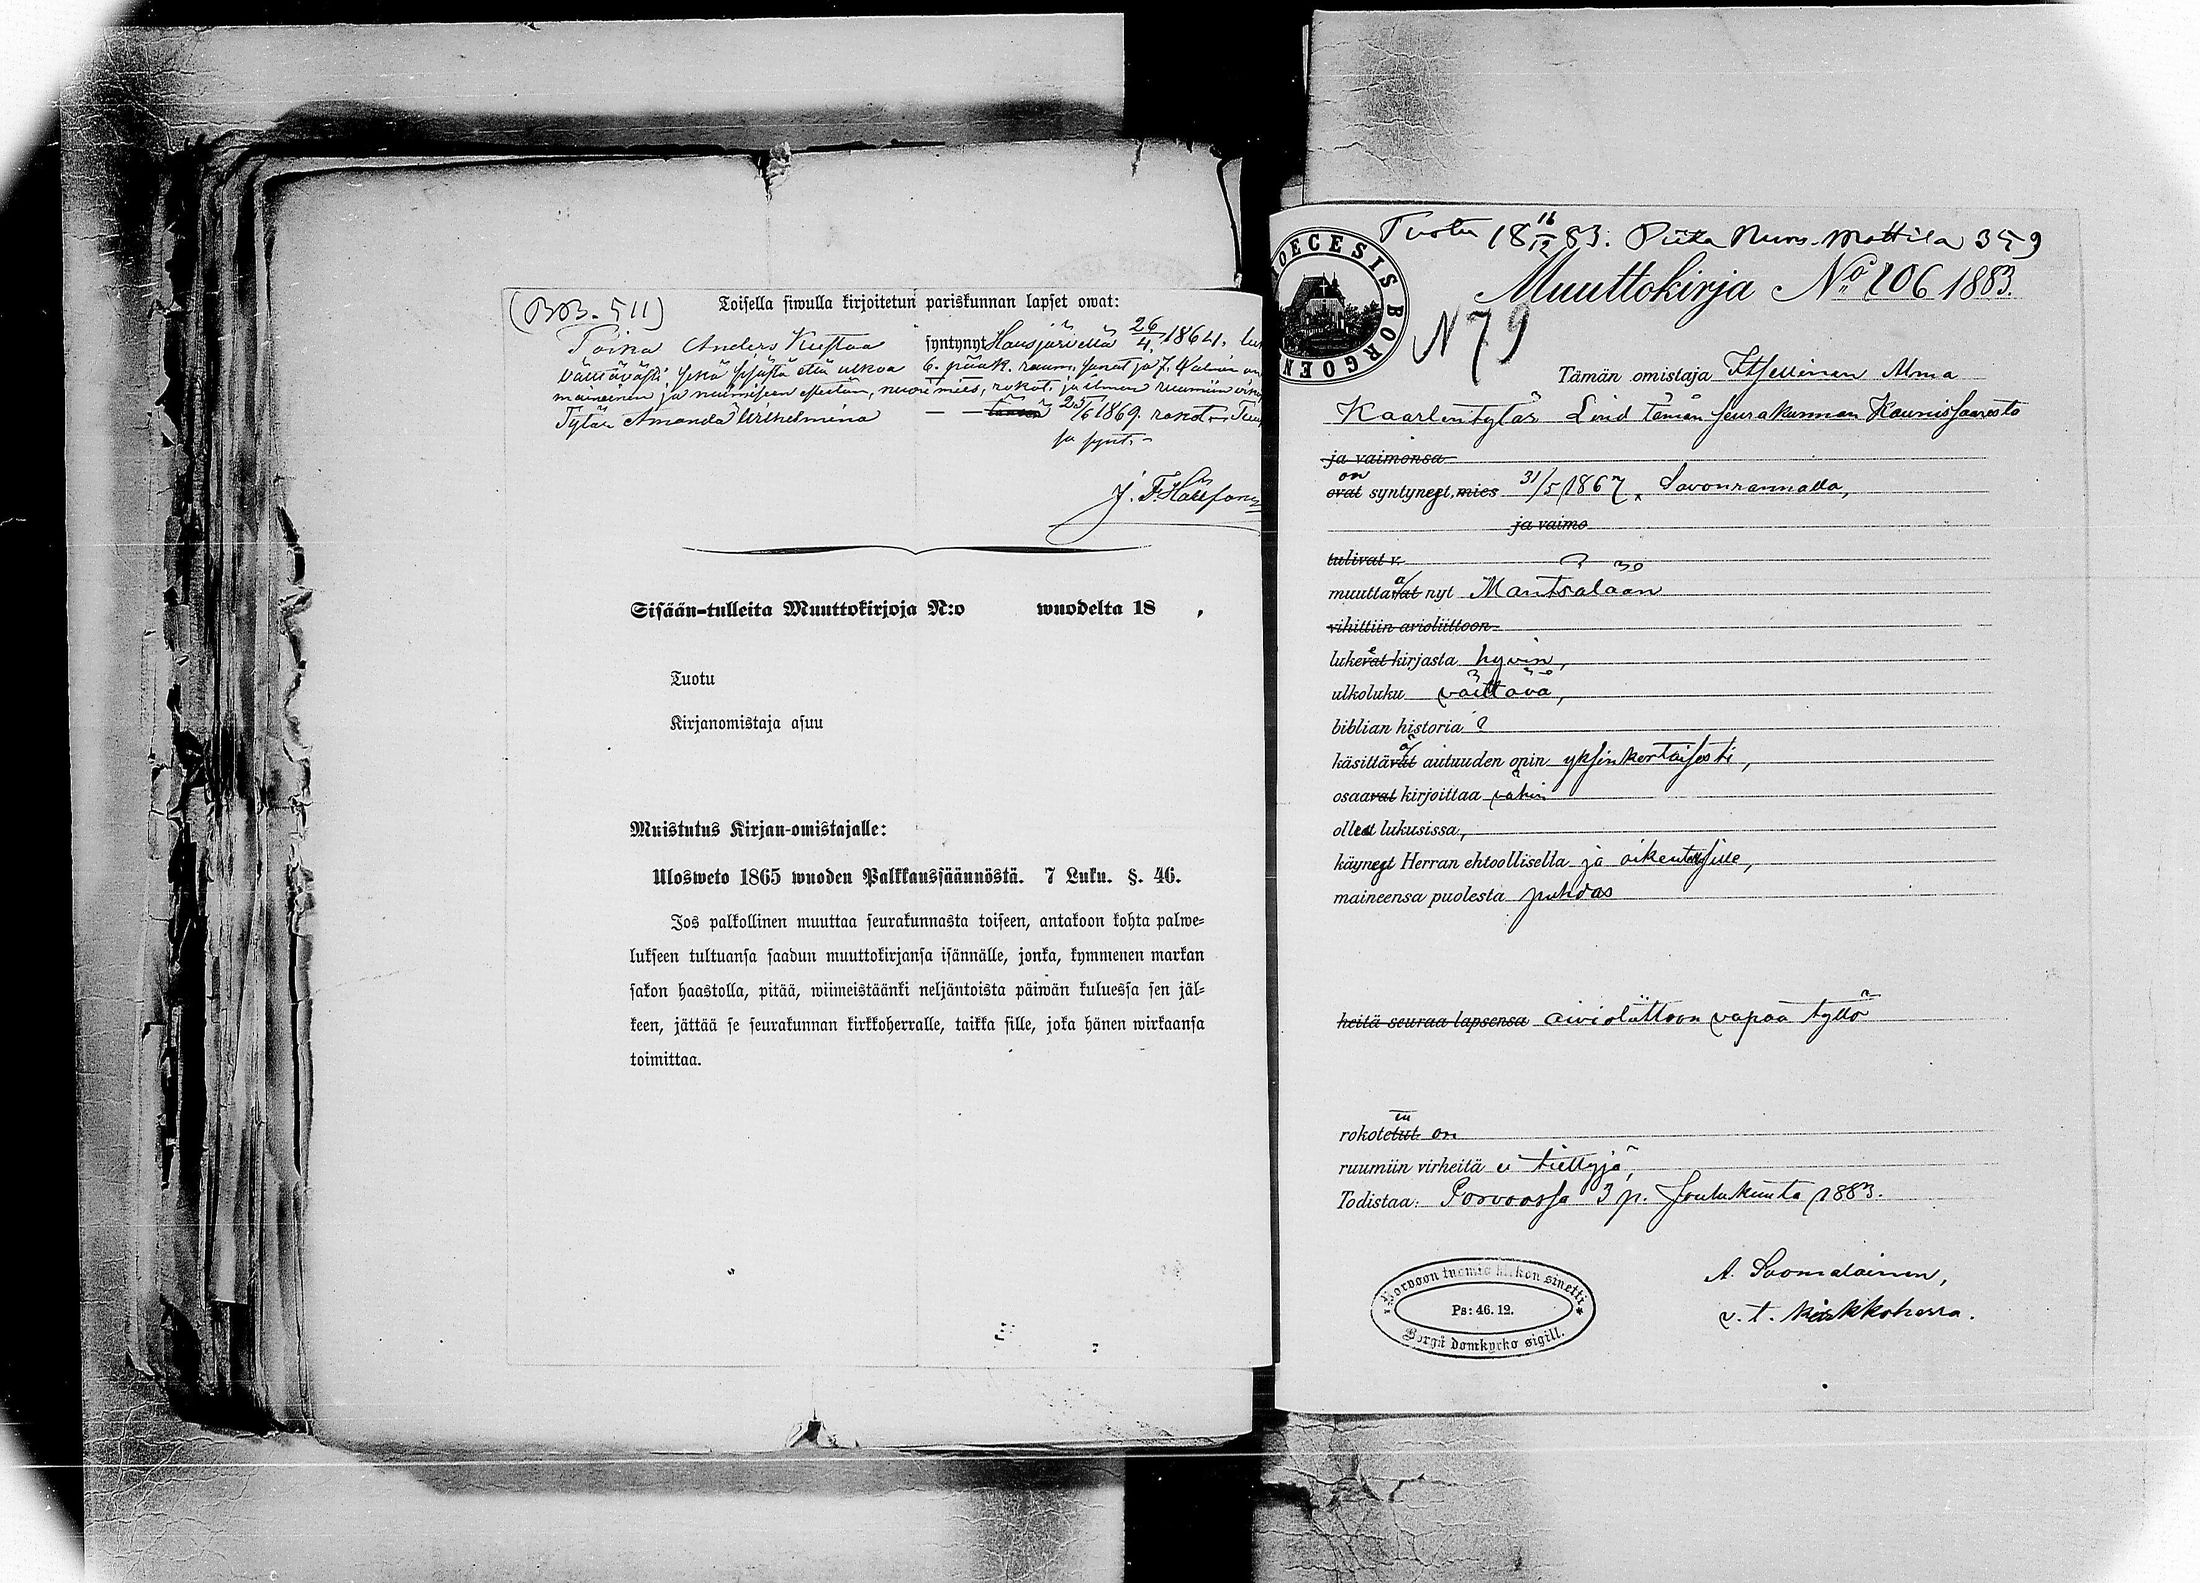 (BB. 511)
Toisella siwulla kirjoitetun pariskunnan lapset owat:
Poika Anders Kustaa syntynyt Hausjärvellä 26/4 1864,
välttävästi, sekä sisästä että ulkoa 6. pääk.
maineinen ja naimiseen esteetön, nuori mies, rokot. ja ilman ruumiin
Tytär Amanda Wilhelmina — — 25/6 1869. rokot.
ja synt. -
J. F. Hällfors
Sisään-tulleita Muuttokirjoja N:o wuodelta 18 ,
Tuotu
Kirjanomistaja asuu
Muistutus Kirjan-omistajalle:
Ulosweto 1865 wuoden Palkkaussäännöstä. 7 Luku. §. 46.
Jos palkollinen muuttaa seurakunnasta toiseen, antakoon kohta palwe-
lukseen tultuansa saadun muuttokirjansa isännälle, jonka, kymmenen markan
sakon haastolla, pitää, wiimeistäänki neljäntoista päiwän kuluessa sen jäl-
keen, jättää se seurakunnan kirkkoherralle, taikka sille, joka hänen wirkaansa
toimittaa.
Tuotu 18 16/12 83. Mattila 359
DIOECESIS BORGOEN
Muuttokirja No 106 1883.
N 79
Tämän omistaja Itsellinen Alma
Kaarlentytär Lind tämän seurakunnan Kaunissaaresta
ja vaimonsa
on
ovat syntyneet, mies 31/5 1867, Savonrannalla,
ja vaimo
tulivat v.
muuttavat nyt Mäntsälään
vihittiin avioliittoon
lukevat kirjasta hyvin,
ulkoluku välttävä,
biblian historia ?
käsittävät autuuden opin yksinkertaisesti,
osaavat kirjoittaa vähin
olleet lukusissa,
käyneet Herran ehtoollisella ja oikeutettu sille,
maineensa puolesta puhdas
heitä seuraa lapsensa avioliittoon vapaa tyttö
rokotetut on
ruumiin virheitä ei tiettyjä,
Todistaa: Porvoossa 3 p. Joulukuuta 1883.
A. Suomalainen,
v. t. kirkkoherra.
Porvoon tuomio kirkon sinetti
Ps: 46. 12.
Borgå domkyrko sigill.